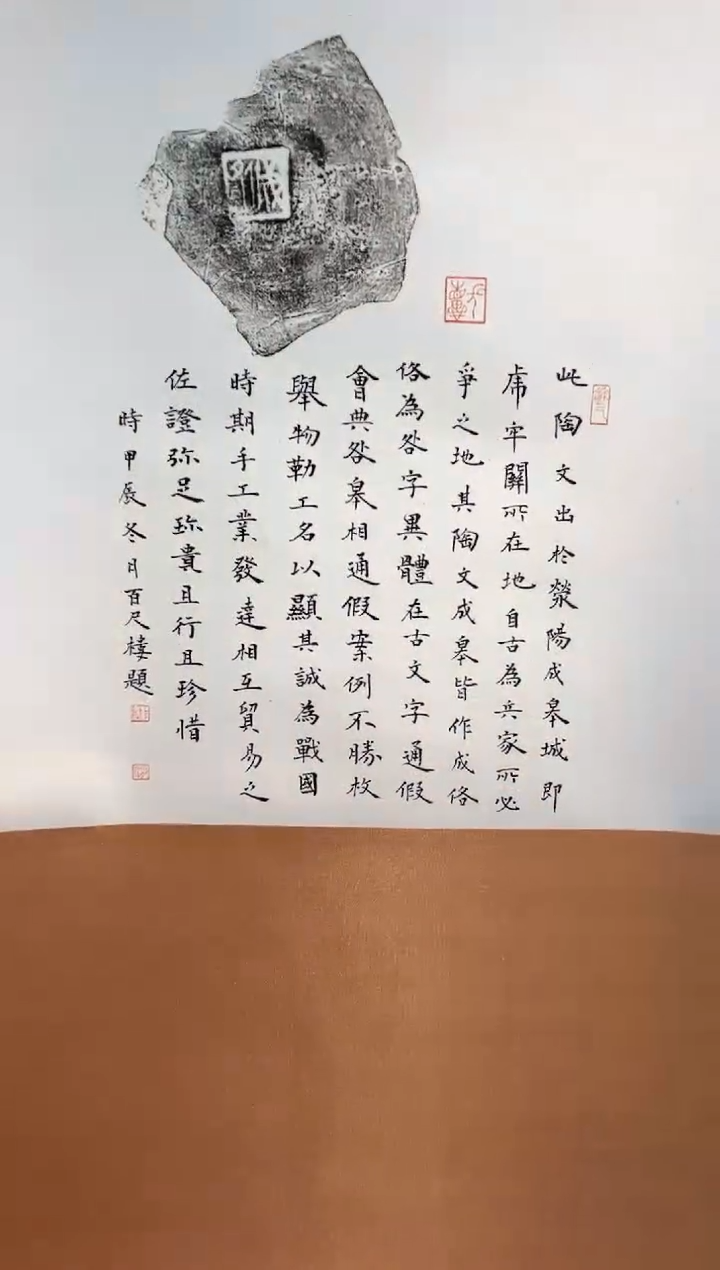 此陶文出於滎陽成皋城即
虎牢關所在地自古為兵家所必
爭之地其陶文成皋皆作成俈
俈為咎字異體在古文字通假
會典咎皋相通假案例不勝枚
舉物勒工名以顯其誠為戰國
時期手工業發達相互貿易之
佐證弥足珍貴且行且珍惜
時甲辰冬月百尺樓題